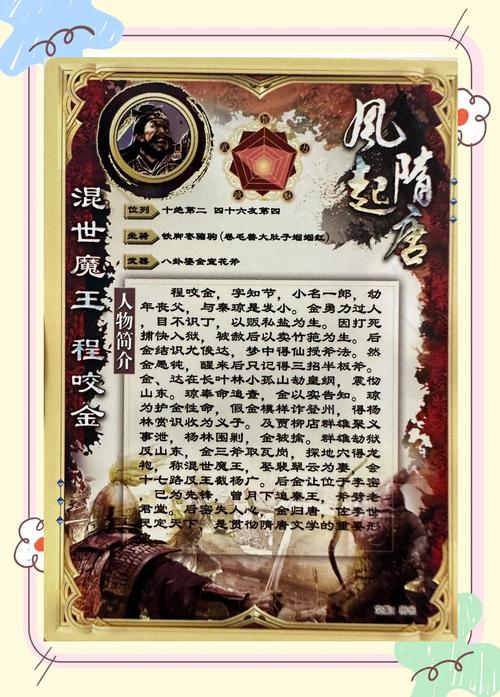 風起隋唐
混世魔王 程咬金
位列 十绝第二 四十六友第四
坐骑 铁脚枣骝驹(卷毛兽大肚子蝈蝈红)
武器 八卦鎏金宣花斧
人物简介
程咬金，字知节，小名一郎，幼
年丧父，与秦琼是发小。金勇力过人
，目不识丁，以贩私盐为生。因打死
捕快入狱，被赦后以卖竹笆为生。后
金结识尤俊达，梦中得仙授斧法。然
金愚钝，醒来后只记得三招半板斧。
金、达在长叶林小孤山劫皇纲，震惚
山东。琼奉命追查，金以实告知。琼
为护金性命，假金模样诈登州，得杨
林赏识收为义子。及贾柳店群雄聚义
事泄，杨林围剿，金被擒。群雄劫狱
反山东，金三斧取瓦岗，探地穴得龙
袍，称混世魔王，娶裴翠云为妻，会
十七路反王截杨广。后金让位于李密
，己为先锋，曾月下追秦王，斧劈老
君堂。后密失人心，金归唐，佐李世
民定天下，是贯彻隋唐文学的重要形